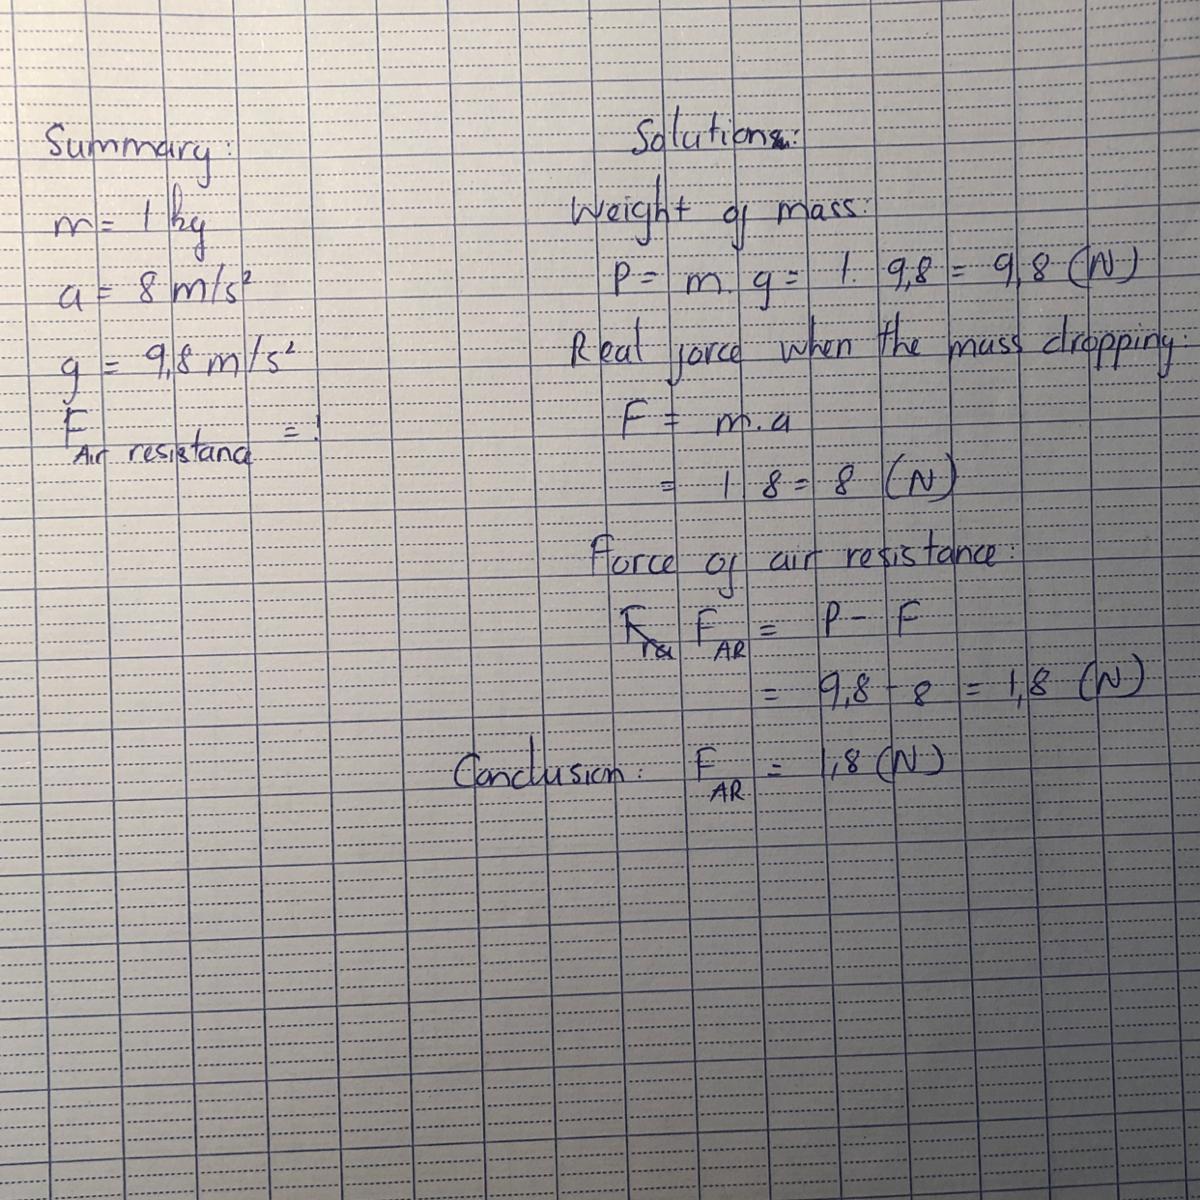 Summary:
m = 1 kg
a = 8 m/s²
g = 9,8 m/s²
F Air resistanc = ?
Solutions:
Weight of mass:
P = m. g = 1. 9,8 = 9,8 (N)
Real force when the mass dropping:
F = m.a
= 1 8 = 8 (N)
Force of air resistance:
F_AR = P - F
= 9,8 - 8 = 1,8 (N)
Conclusion: F_AR = 1,8 (N)